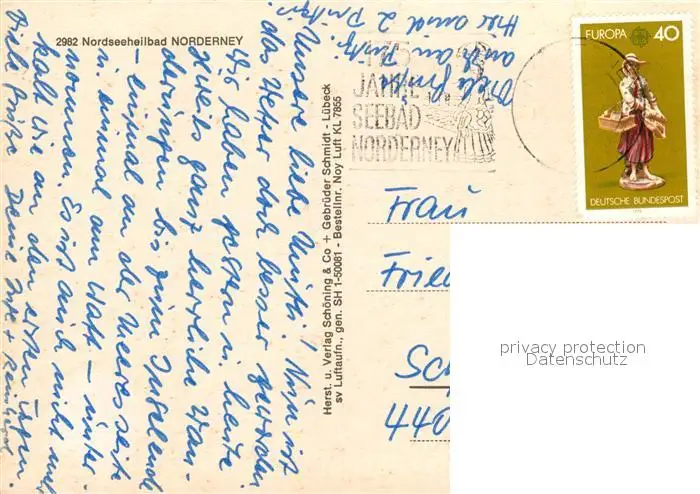 2982 Nordseeheilbad NORDERNEY
Unsere liebe Mutti! Nun ist
das Wetter doch besser geworden
Wir haben gestern u. heute
jeweils ganz herrliche Wan-
derungen bis zum Inselende
– einmal an der Meeresseite
u. einmal am Watt – unter-
nommen. Es ist auch nicht mehr
kalt wie an den ersten Tagen.
Viele Grüße Deine
Viele Grüße
auch an
Hier sind 2
Herst. u. Verlag Schöning & Co + Gebrüder Schmidt - Lübeck
sv Luftaufn., gen. SH 1-50081 - Bestellnr. Noy Luft KL 7855
175
JAHRE
SEEBAD
NORDERNEY
EUROPA 40
DEUTSCHE BUNDESPOST
Frau
Fried
Sch
440
privacy protection
Datenschutz